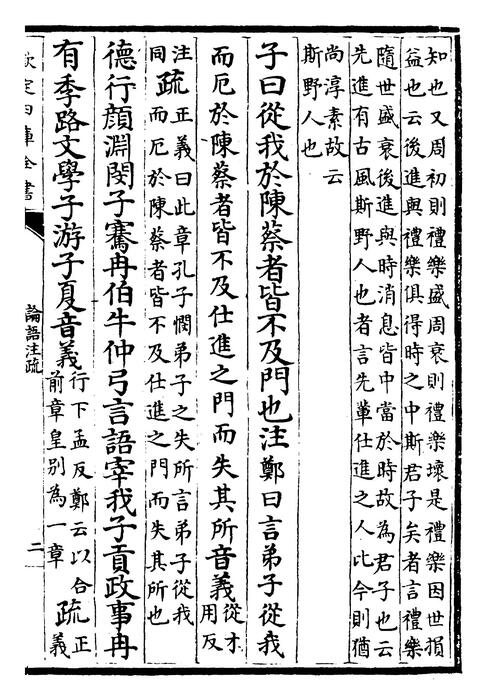 知也又周初則禮樂盛周衰則禮樂壞是禮樂因世損
益也云後進與禮樂俱得時之中斯君子矣者言禮樂
隨世盛衰後進與時消息皆中當於時故為君子也云
先進有古風斯野人也者言先輩仕進之人比今則猶
尚淳素故云
斯野人也
子曰從我於陳蔡者皆不及門也注鄭曰言弟子從我
而厄於陳蔡者皆不及仕進之門而失其所音義從才
用反
注
同
疏正義曰此章孔子憫弟子之失所言弟子從我
而厄於陳蔡者皆不及仕進之門而失其所也
德行顔淵閔子騫冉伯牛仲弓言語宰我子貢政事冉
有季路文學子游子夏音義行下孟反鄭云以合
前章皇别為一章
疏正
義
欽定四庫全書
論語注疏
二